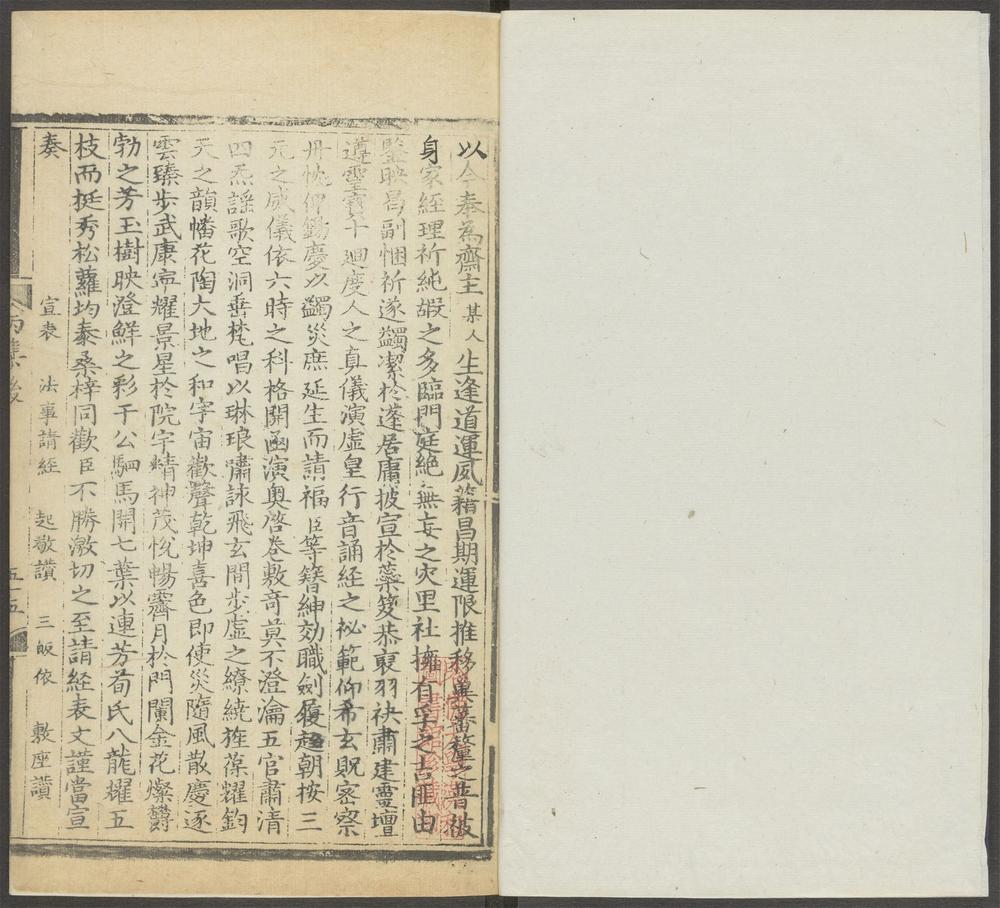 以今奉為齋主某人生逢道運夙藉昌期運限推移冀蕃釐之普被
身家經理祈純嘏之多臨門庭絶無妄之灾里社擁有孚之吉匪由
鑒映曷副悃祈遂蠲潔於蓬居庸披宣於蘂笈恭裒羽袂肅建靈壇
遵靈寳十迴度人之真儀演虚皇行音誦經之祕範仰希玄貺密察
丹忱俾錫慶以蠲災庶延生而請福臣等簪紳効職劍履趨朝按三
元之威儀依六時之科格開函演奥啓卷敷奇莫不澄瀹五官肅清
四炁謡歌空洞垂梵唱以琳琅嘯詠飛玄間步虚之繚繞旌葆耀鈞
天之韻幡花陶大地之和宇宙歡聲乾坤喜色即使災隨風散慶逐
雲臻步武康寧耀景星於院宇精神茂悅暢霽月於門闌金花燦欝
勃之芳玉樹映澄鮮之彩于公駟馬開七葉以連芳荀氏八龍擢五
枝而挺秀松蘿均泰桑梓同歡臣不勝激切之至請經表文謹當宣
奏
宣表 法事請經 起敬讚 三皈依 敷座讚
丙集後
五十五